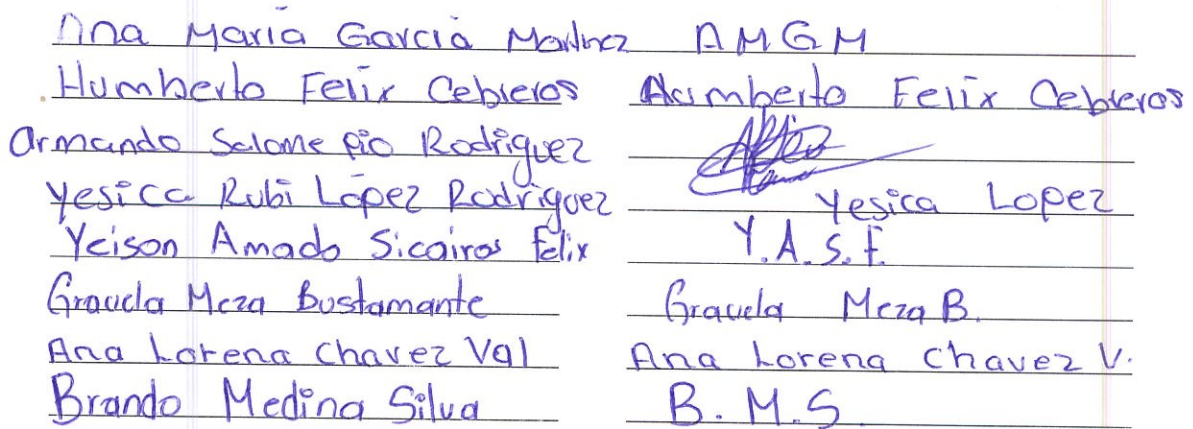 Ana María García Martínez AMGM
Humberto Felix Cebreros Humberto Felix Cebreros
Armando Salome Pio Rodriguez
Yesica Rubi López Rodriguez Yesica Lopez
Yeison Amado Sicairos Felix Y.A.S.F.
Graciela Meza Bustamante Graciela Meza B.
Ana Lorena Chavez Val Ana Lorena Chavez V.
Brando Medina Silva B.M.S